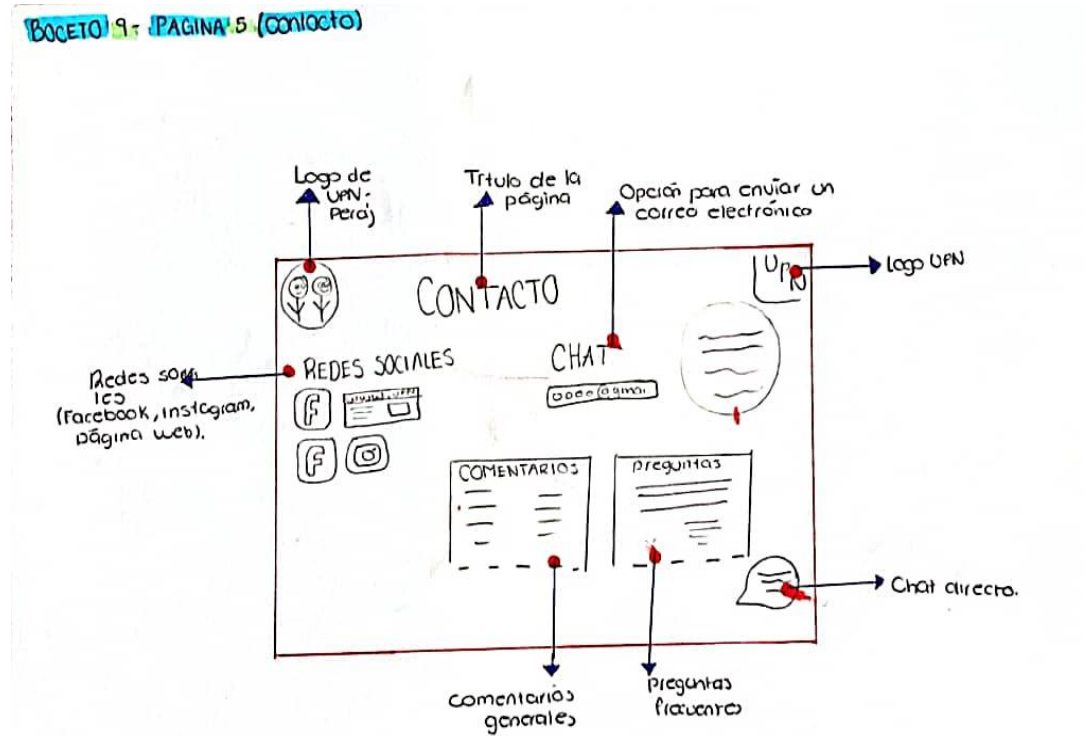 BOCETO 9- PAGINA 5 (contacto)
Logo de
UPN-
Peraj
Título de la
página
Opción para enviar un
correo electrónico
UPN
Logo UPN
CONTACTO
Redes socia
les
(Facebook, instagram,
página web).
REDES SOCIALES
CHAT
F
www.UPN
F
COMENTARIOS
preguntas
Chat directo.
comentarios
generales
preguntas
frecuentes